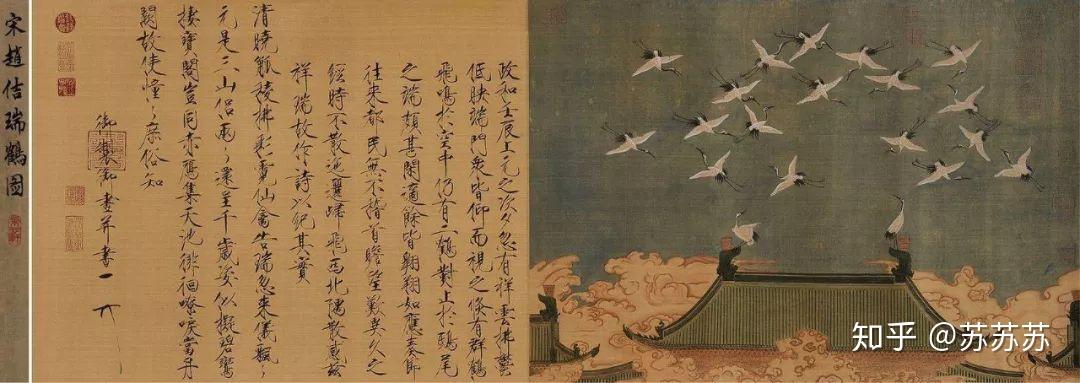 政和壬辰上元之次夕忽有祥雲拂鬱
低映端門衆皆仰而視之倏有群鶴
飛鳴於空中仍有二鶴對止於鴟尾
之端頗甚閑適餘皆翱翔如應奏節
往來都民無不稽首瞻望歎異久之
經時不散迤邐歸飛西北隅散感茲
祥瑞故作詩以紀其實
清曉觚稜拂彩霓仙禽告瑞忽來儀飄〻
元是三山侶兩〻還呈千歲姿似擬碧鸞
棲寶閣豈同赤鴈集天池徘徊嘹唳當丹
闕故使憧〻庶俗知
御製御畫并書
宋趙佶瑞鶴图
知乎 @苏苏苏